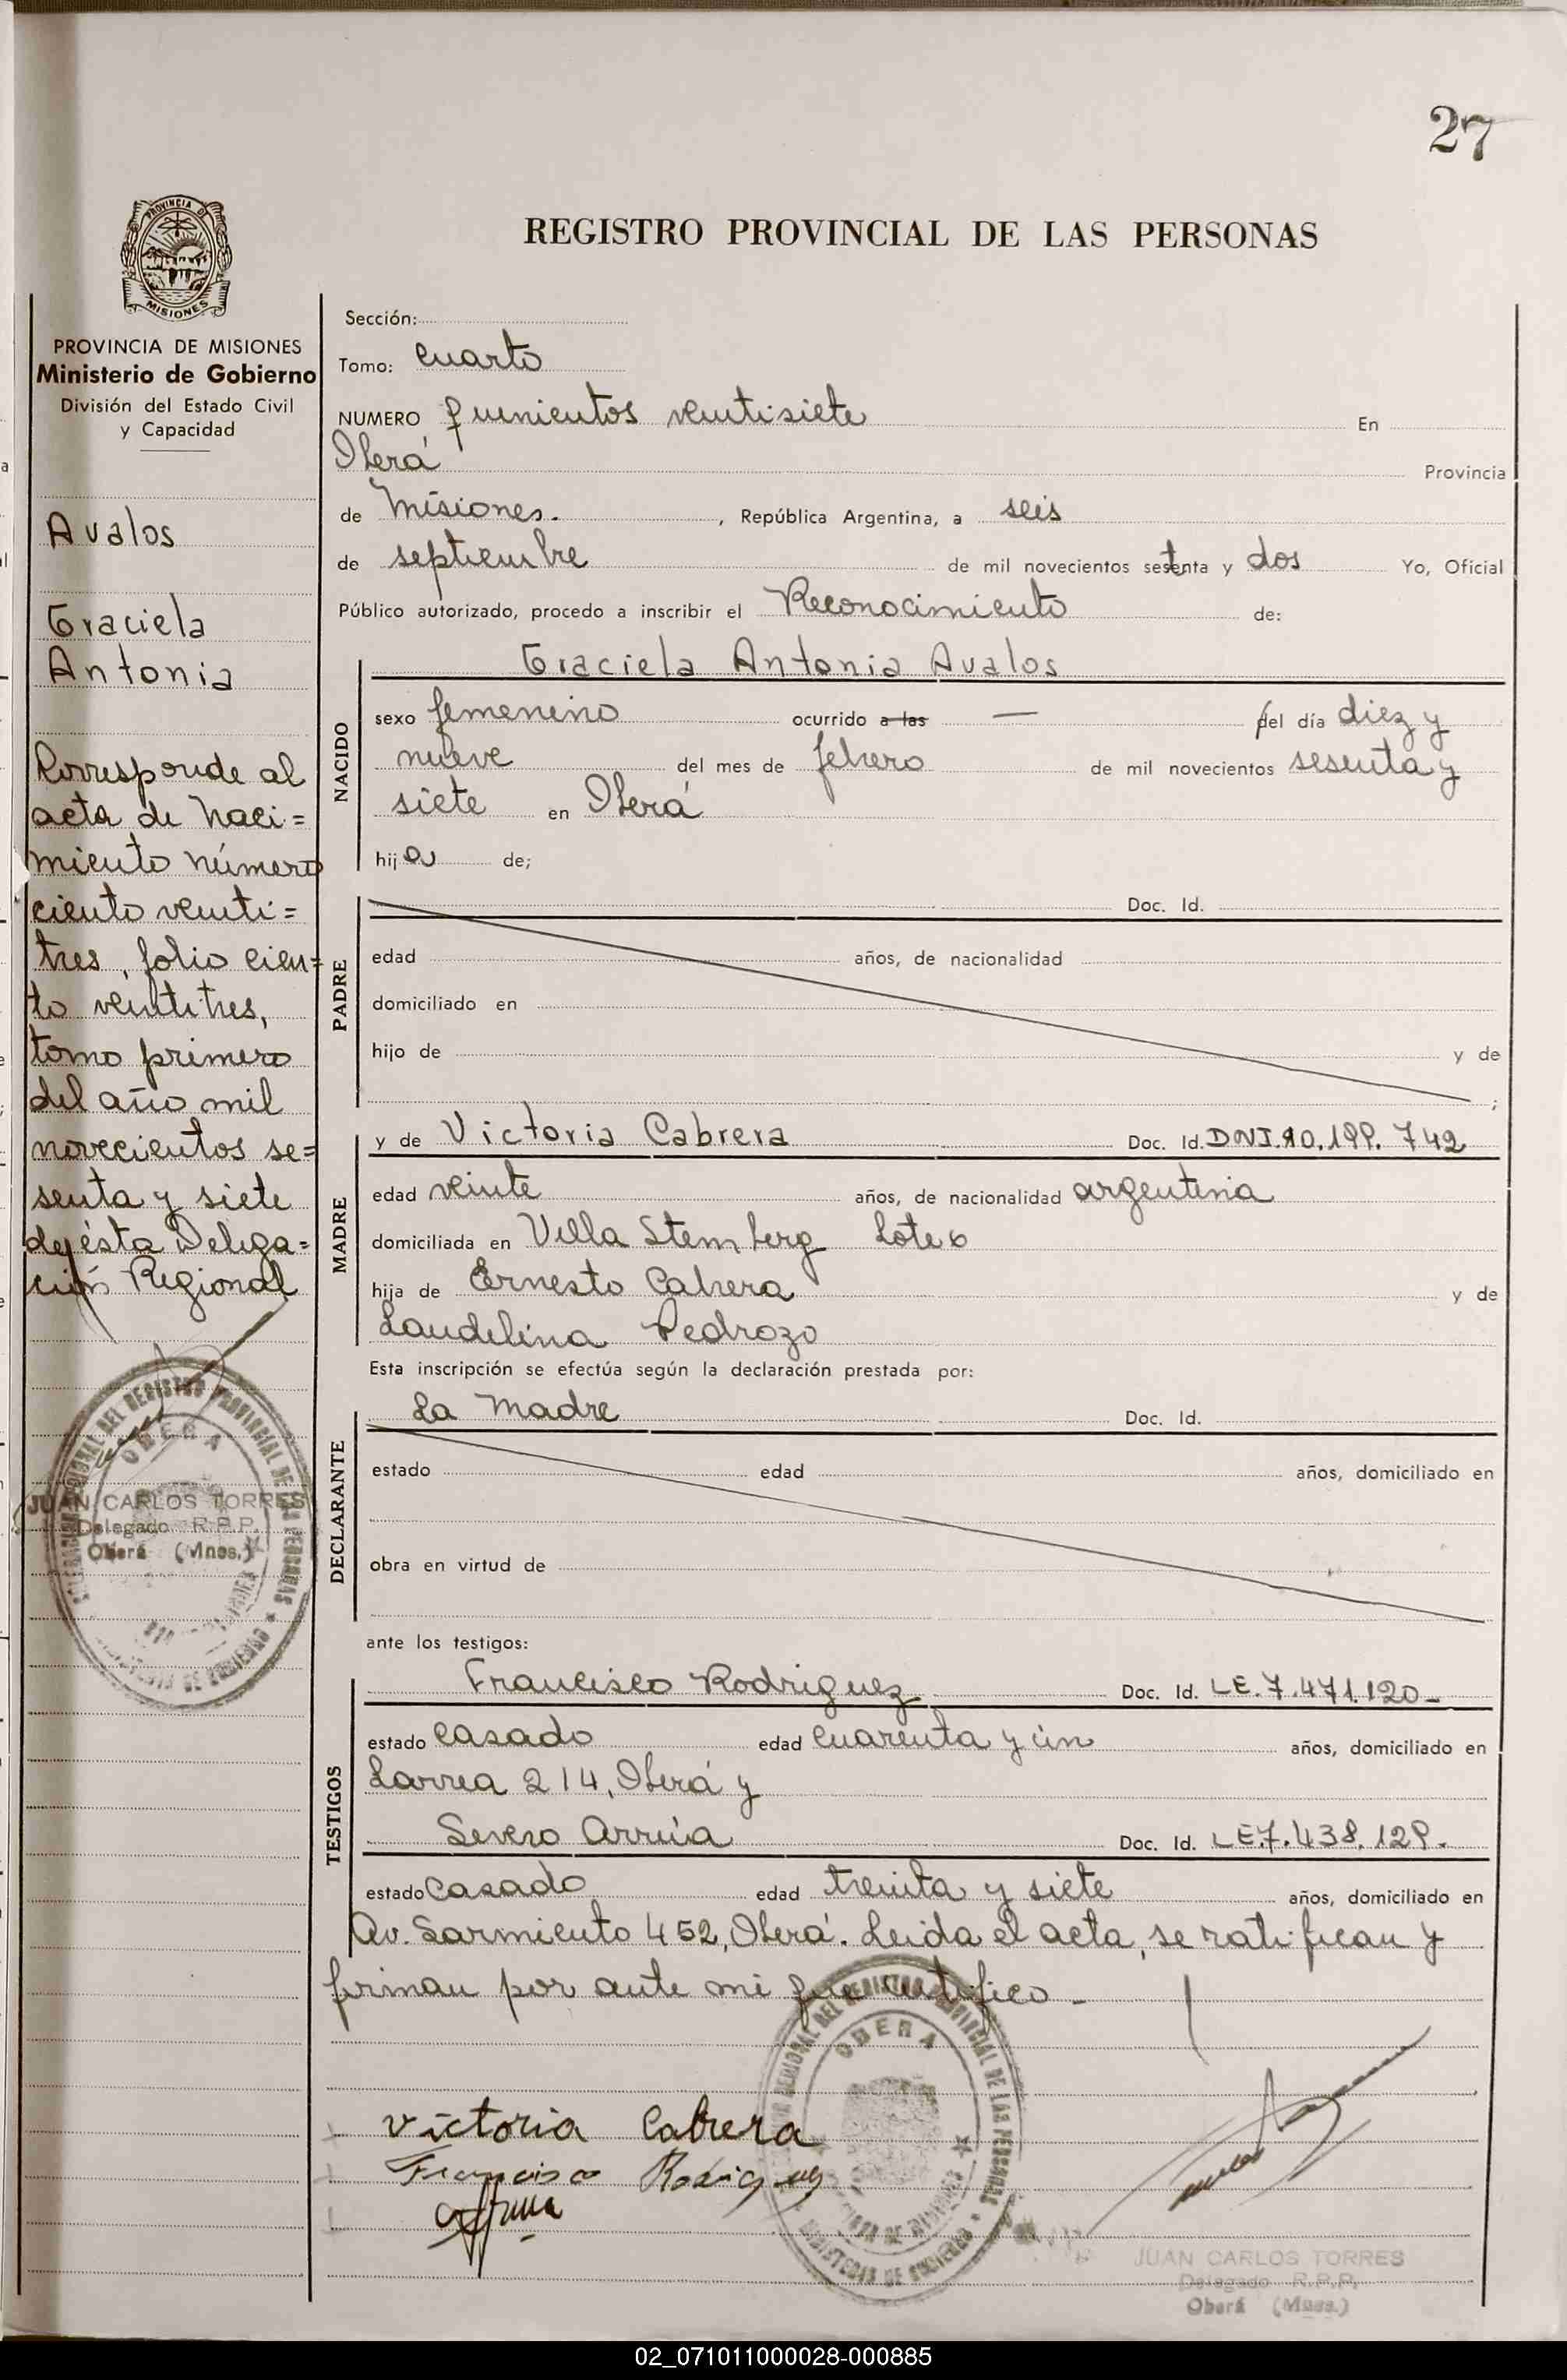 27
PROVINCIA DE
MISIONES
REGISTRO PROVINCIAL DE LAS PERSONAS
PROVINCIA DE MISIONES
Ministerio de Gobierno
División del Estado Civil
y Capacidad
Avalos
Graciela
Antonia
Corresponde al
acta de Naci=
miento número
ciento veinti=
tres, folio cien=
to veintitres,
tomo primero
del año mil
novecientos se=
senta y siete
de ésta Delega=
ción Regional
OBERA
JUAN CARLOS TORRES
Delegado R.P.P.
Oberá (Mnes.)
Sección:
Tomo: Cuarto
NUMERO quinientos veintisiete En
Oberá Provincia
de Misiones. , República Argentina, a seis
de septiembre de mil novecientos setenta y dos Yo, Oficial
Público autorizado, procedo a inscribir el Reconocimiento de:
NACIDO
Graciela Antonia Avalos
sexo femenino ocurrido a las — del día diez y
nueve del mes de febrero de mil novecientos sesenta y
siete en Oberá
hija de;
PADRE
Doc. Id.
edad años, de nacionalidad
domiciliado en
hijo de y de
;
MADRE
y de Victoria Cabrera Doc. Id. DNI.10.199.742
edad veinte años, de nacionalidad argentina
domiciliada en Villa Stemberg Lote 6
hija de Ernesto Cabrera y de
Laudelina Pedrozo
Esta inscripción se efectúa según la declaración prestada por:
DECLARANTE
La Madre Doc. Id.
estado edad años, domiciliado en
obra en virtud de
ante los testigos:
TESTIGOS
Francisco Rodriguez Doc. Id. LE.7.471.120-
estado casado edad cuarenta y un años, domiciliado en
Larrea 214, Oberá y
Severo Arrúa Doc. Id. LE.7.438.129.
estado casado edad treinta y siete años, domiciliado en
Av. Sarmiento 452, Oberá. Leida el acta, se ratifican y
firman por ante mi que certifico -
OBERA
Victoria Cabrera
Francisco Rodriguez
JUAN CARLOS TORRES
Delegado R.P.P.
Oberá (Mnes.)
02_071011000028-000885